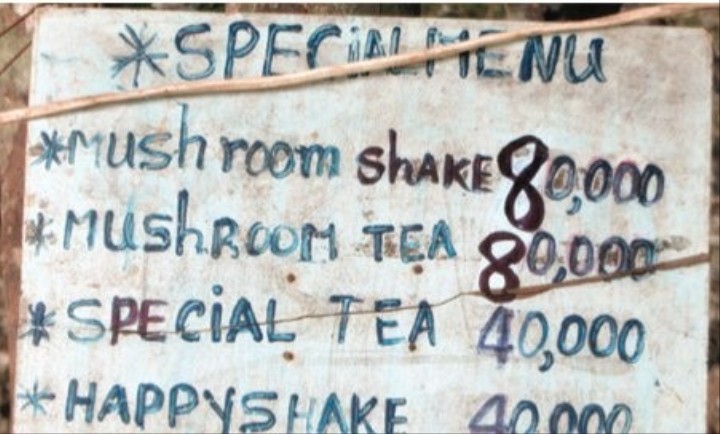 *SPECiN MENU
*Mushroom shAKE 80,000
*MUshROOM TEA 80,000
*SPECiAL TEA 40,000
*HAPPY SHAKE 40,000